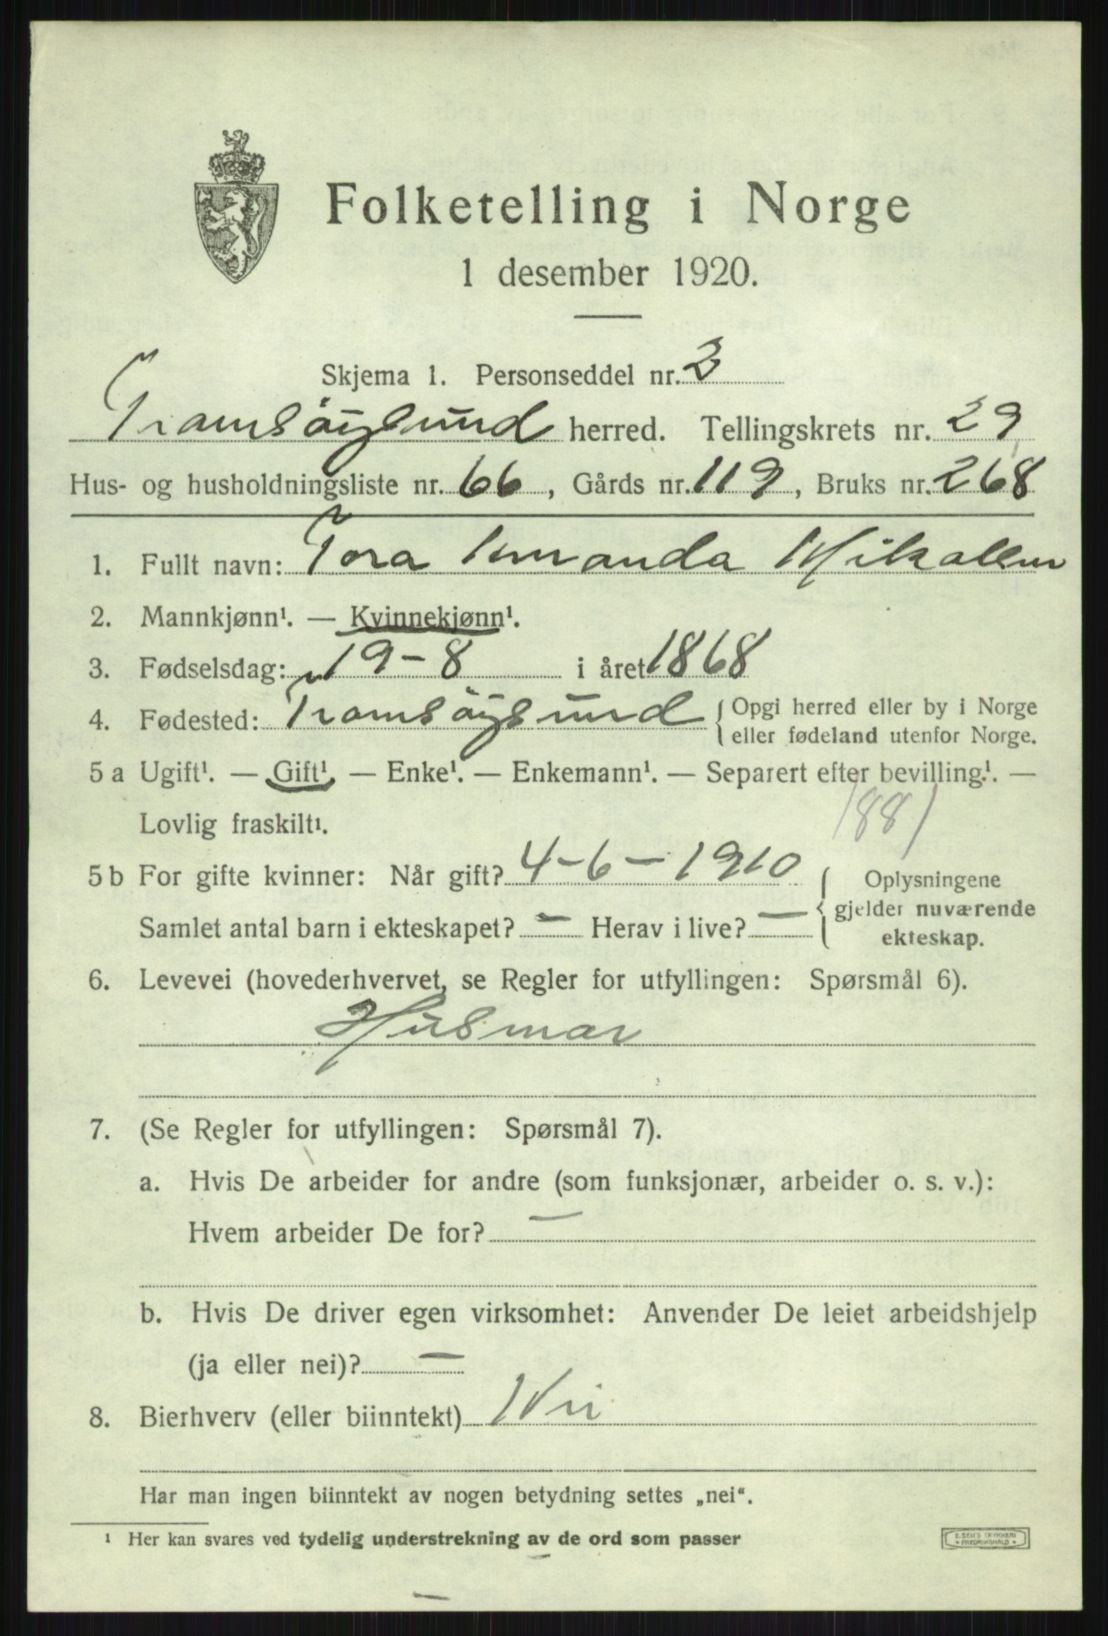 Folketelling i Norge
1 desember 1920.
Skjema 1. Personseddel nr. 3
Tromsøysund herred. Tellingskrets nr. 29
Hus- og husholdningsliste nr. 66, Gårds nr. 119, Bruks nr. 268
1. Fullt navn: Tora Amanda Mikalsen
2. Mannkjønn¹. — Kvinnekjønn¹.
3. Fødselsdag: 19-8 i året 1868
4. Fødested: Tromsøysund { Opgi herred eller by i Norge
eller fødeland utenfor Norge.
5 a Ugift¹. — Gift¹. — Enke¹. — Enkemann¹. — Separert efter bevilling¹. —
Lovlig fraskilt¹.
1881
5 b For gifte kvinner: Når gift? 4-6-1910 { Oplysningene
gjelder nuværende
ekteskap.
Samlet antal barn i ekteskapet? — Herav i live? —
6. Levevei (hovederhvervet, se Regler for utfyllingen: Spørsmål 6).
Husmor
7. (Se Regler for utfyllingen: Spørsmål 7).
a. Hvis De arbeider for andre (som funksjonær, arbeider o. s. v.):
Hvem arbeider De for? —
b. Hvis De driver egen virksomhet: Anvender De leiet arbeidshjelp
(ja eller nei)? —
8. Bierhverv (eller biinntekt) Nei
Har man ingen biinntekt av nogen betydning settes „nei“.
¹ Her kan svares ved tydelig understrekning av de ord som passer